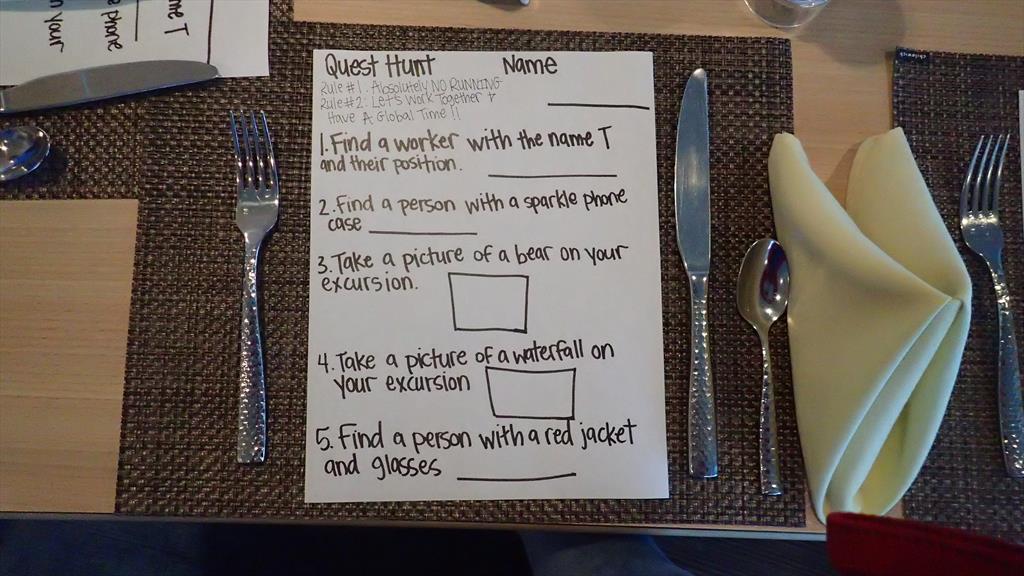 me T
e phone
on your
Quest Hunt Name
Rule #1: Absolutely NO RUNNING
Rule #2: Let's Work Together &
Have A Global Time!!
1. Find a worker with the name T
and their position.
2. Find a person with a sparkle phone
case
3. Take a picture of a bear on your
excursion.
4. Take a picture of a waterfall on
your excursion
5. Find a person with a red jacket
and glasses